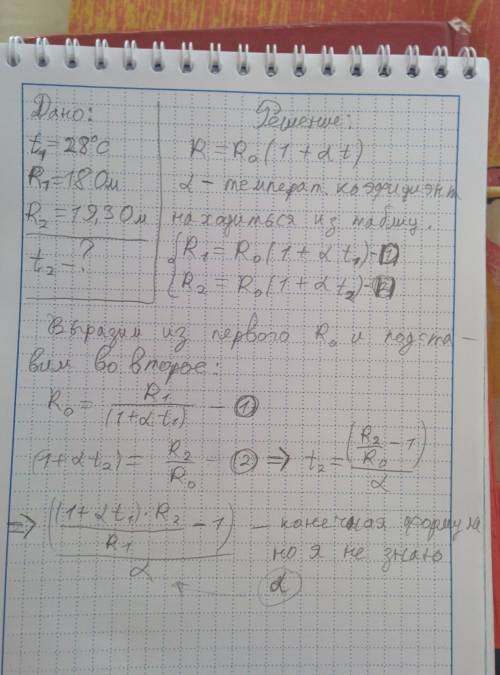 Дано:
t₁=28°C
R₁=18 Ом
R₂=19,3 Ом
t₂ - ?
Решение:
R = R₀(1+αt)
α - температ. коэффициент
находиться из таблиц.
{R₁ = R₀(1+αt₁) - 1
{R₂ = R₀(1+αt₂) - 2
Выразим из первого R₀ и подста-
вим во второе:
R₀ = R₁/(1+αt₁) - 1
(1+αt₂) = R₂/R₀ - 2 ⇒ t₂ = (R₂/R₀ - 1)/α
⇒ ((1+αt₁)·R₂/R₁ - 1)/α - конечная формула
но я не знаю
α